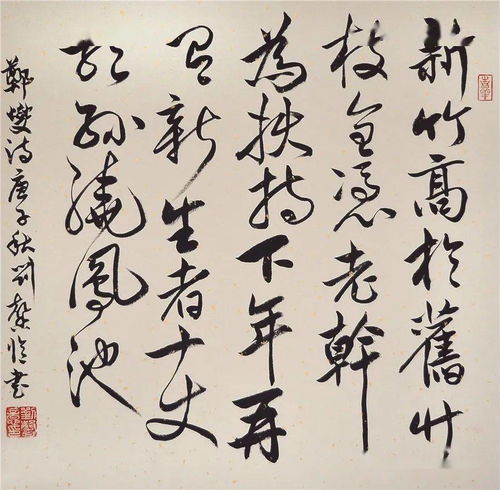 新竹高於舊竹
枝全憑老幹
為扶持下年再
有新生者十丈
龍孫繞鳳池
鄭燮詩庚子秋劉書